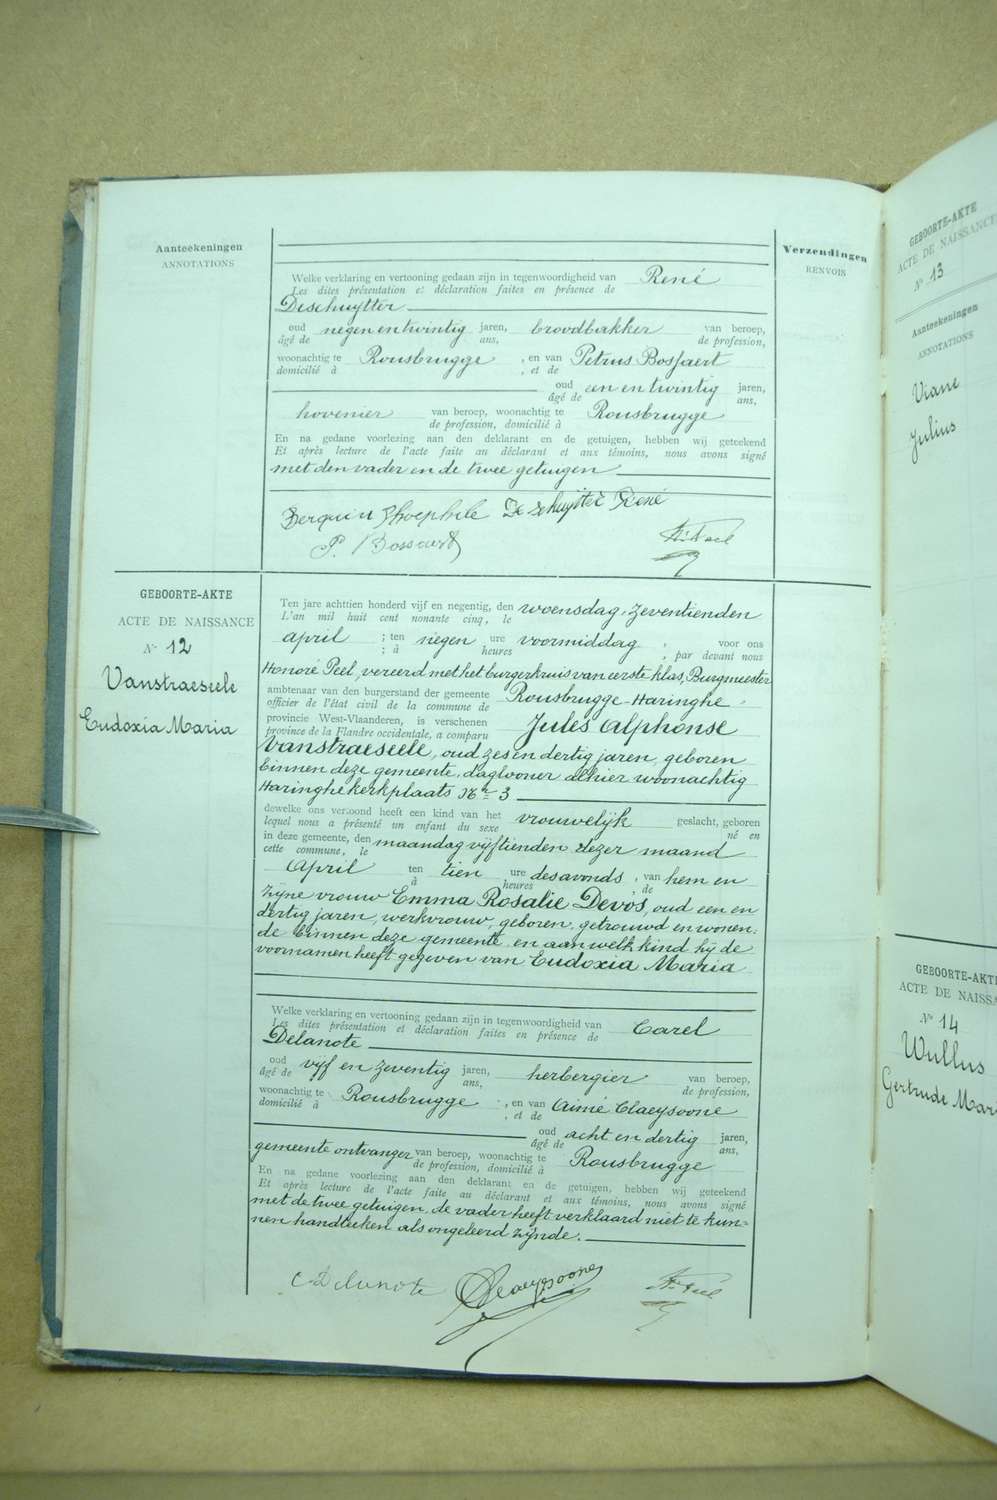 Aanteekeningen
ANNOTATIONS
Verzendingen
RENVOIS
Welke verklaring en vertooning gedaan zijn in tegenwoordigheid van René
Les dites présentation et déclaration faites en présence de
Deschuytter
oud negen en twintig jaren, broodbakker van beroep,
âgé de ans, de profession,
woonachtig te Rousbrugge , en van Petrus Bossaert
domicilié à , et de
oud een en twintig jaren,
âgé de ans,
hovenier van beroep, woonachtig te Rousbrugge
de profession, domicilié à
En na gedane voorlezing aan den deklarant en de getuigen, hebben wij geteekend
Et après lecture de l'acte faite au déclarant et aux témoins, nous avons signé
met den vader en de twee getuigen
Deschuytter René
P. Bossaert
GEBOORTE-AKTE
ACTE DE NAISSANCE
N° 12
Vanstraeseele
Eudoxia Maria
Ten jare achttien honderd vijf en negentig, den woensdag, zeventienden
L'an mil huit cent nonante cinq, le
April ; ten negen ure voormiddag , voor ons
; à heures , par devant nous
Honoré Peel, vereerd met het burgerkruis van eerste klas, Burgmeester
ambtenaar van den burgerstand der gemeente Rousbrugge-Haringhe,
officier de l'état civil de la commune de
provincie West-Vlaanderen, is verschenen Jules Alphonse
province de la Flandre occidentale, a comparu
Vanstraeseele, oud zes en dertig jaren, geboren
binnen deze gemeente, daglooner alhier woonachtig
Haringhe kerkplaats Nr 3
dewelke ons vertoond heeft een kind van het vrouwelijk geslacht, geboren
lequel nous a présenté un enfant du sexe né en
in deze gemeente, den maandag vijftienden dezer maand
cette commune, le
April ten tien ure des avonds, van hem en
à heures de
zijne vrouw Emma Rosalie Devos, oud een en
dertig jaren, werkvrouw, geboren, getrouwd en wonen:
de binnen deze gemeente, en aan welk kind hij de
voornamen heeft gegeven van Eudoxia Maria
Welke verklaring en vertooning gedaan zijn in tegenwoordigheid van Carel
Les dites présentation et déclaration faites en présence de
Delanote
oud vijf en zeventig jaren, herbergier van beroep,
âgé de ans, de profession,
woonachtig te Rousbrugge , en van Aimé Claeysoone
domicilié à , et de
oud acht en dertig jaren,
âgé de ans,
gemeente ontvanger van beroep, woonachtig te Rousbrugge
de profession, domicilié à
En na gedane voorlezing aan den deklarant en de getuigen, hebben wij geteekend
Et après lecture de l'acte faite au déclarant et aux témoins, nous avons signé
met de twee getuigen, de vader heeft verklaard niet te kun-
nen handteeken als ongeleerd zijnde.
C Delanote Claeysoone
GEBOORTE-AKTE
ACTE DE NAISSANCE
N° 13
Aanteekeningen
ANNOTATIONS
Viane
Julius
GEBOORTE-AKT
ACTE DE NAISSA
N° 14
Wullus
Gertrude Mar